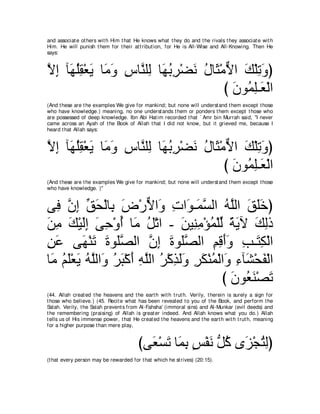 and associate others with Him that He knows what they do and the rivals they associate with
Him. He will punish them for their attribution, for He is All-Wise and All-Knowing. Then He
says:
(وَتِلْكَ الاٌّمْثَالُ نَضْرِبُهَا لِلنَّاسِ وَمَا يَعْقِلُهَآ إِلاَّ
الْعَـلِمُونَ )
(And these are the examples We give for mankind; but none will understand them except those
who have knowledge.) meaning, no one understands them or ponders them except those who
are possessed of deep knowledge. Ibn Abi Hatim recorded that `Amr bin Murrah said, "I never
came across an Ayah of the Book of Allah that I did not know, but it grieved me, because I
heard that Allah says:
(وَتِلْكَ الاٌّمْثَالُ نَضْرِبُهَا لِلنَّاسِ وَمَا يَعْقِلُهَآ إِلاَّ
الْعَـلِمُونَ )
(And these are the examples We give for mankind; but none will understand them except those
who have knowledge. )"
(خَلَقَ اللَّهُ السَّمَـوَتِ وَالاٌّرْضَ بِالْحَقِّ إِنَّ فِى
ذَلِكَ لآيَةً لِّلْمُؤْمِنِينَ - اتْلُ مَا أُوْحِىَ إِلَيْكَ مِنَ
الْكِتَـبِ وَأَقِمِ الصَّلَوةَ إِنَّ الصَّلَوةَ تَنْهَى عَنِ
الْفَحْشَآءِ وَالْمُنْكَرِ وَلَذِكْرُ اللَّهِ أَكْبَرُ وَاللَّهُ يَعْلَمُ مَا
تَصْنَعُونَ )
(44. Allah created the heavens and the earth with truth. Verily, therein is surely a sign for
those who believe.) (45. Recite what has been revealed to you of the Book, and perform the
Salah. Verily, the Salah prevents from Al-Fahsha' (immoral sins) and Al-Munkar (evil deeds) and
the remembering (praising) of Allah is greater indeed. And Allah knows what you do.) Allah
tells us of His immense power, that He created the heavens and the earth with truth, meaning
for a higher purpose than mere play,
(لِتُجْزَى كُلُّ نَفْسٍ بِمَا تَسْعَى)
(that every person may be rewarded for that which he strives) (20:15).